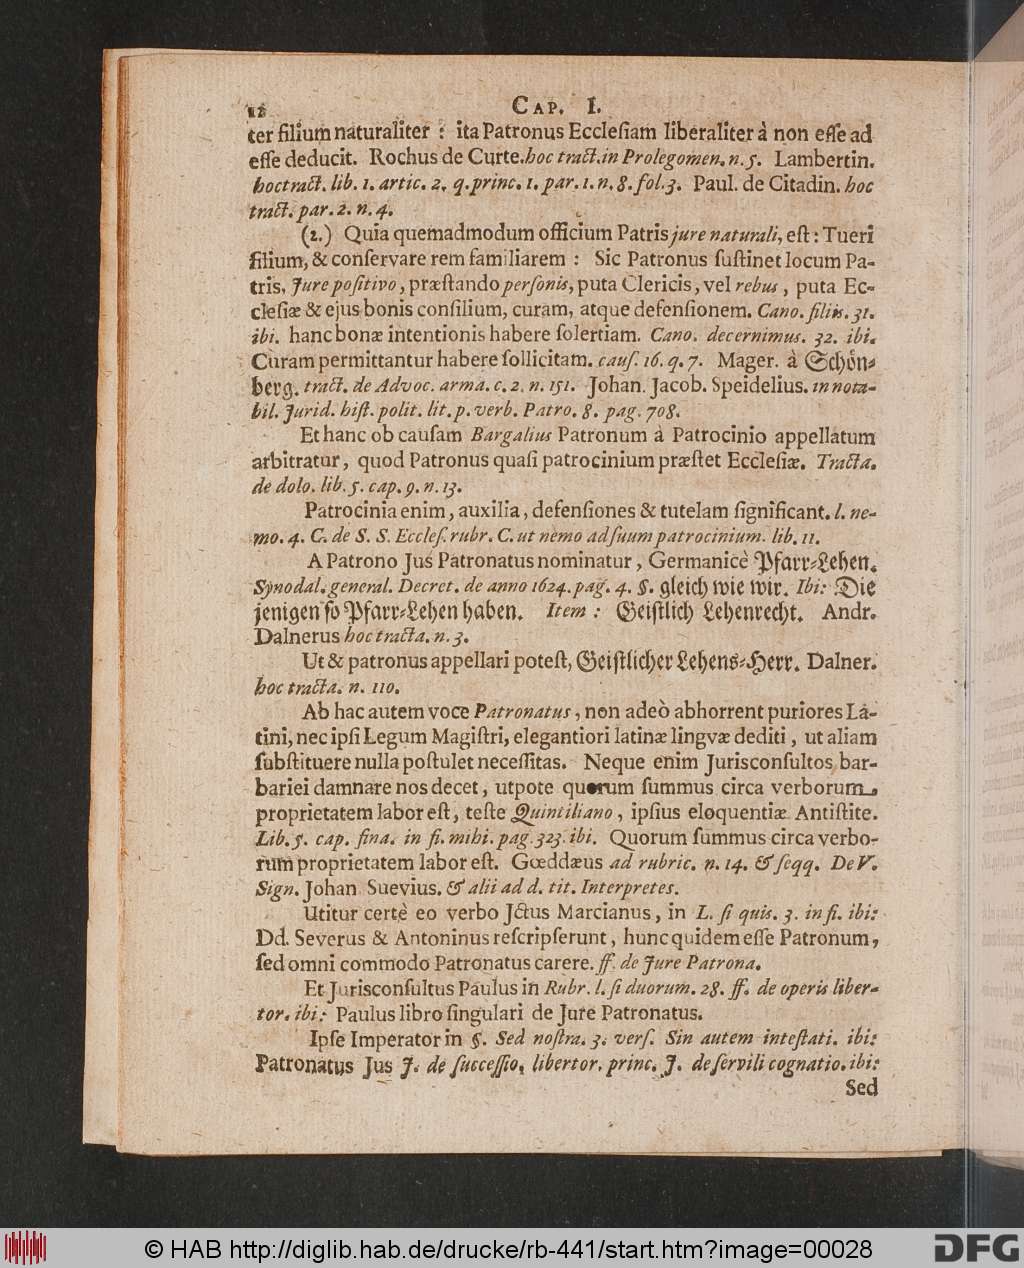 12 CAP. I.
ter filium naturaliter : ita Patronus Ecclesiam liberaliter à non esse ad
esse deducit. Rochus de Curte. hoc tract. in Prolegomen. n. 5. Lambertin.
hoc tract. lib. 1. artic. 2. q. princ. 1. par. 1. n. 8. fol. 3. Paul. de Citadin. hoc
tract. par. 2. n. 4.
(2.) Quia quemadmodum officium Patris jure naturali, est : Tueri
filium, & conservare rem familiarem : Sic Patronus sustinet locum Pa-
tris, Jure positivo, præstando personis, puta Clericis, vel rebus, puta Ec-
clesiæ & ejus bonis consilium, curam, atque defensionem. Cano. filiis. 31.
ibi. hanc bonæ intentionis habere solertiam. Cano. decernimus. 32. ibi.
Curam permittantur habere sollicitam. caus. 16. q. 7. Mager. à Schön-
berg. tract. de Advoc. arma. c. 2. n. 151. Johan. Jacob. Speidelius. in nota-
bil. Jurid. hist. polit. lit. p. verb. Patro. 8. pag. 708.
Et hanc ob causam Bargalius Patronum à Patrocinio appellatum
arbitratur, quod Patronus quasi patrocinium præstet Ecclesiæ. Tracta.
de dolo. lib. 5. cap. 9. n. 13.
Patrocinia enim, auxilia, defensiones & tutelam significant. l. ne-
mo. 4. C. de S. S. Eccles. rubr. C. ut nemo ad suum patrocinium. lib. 11.
A Patrono Jus Patronatus nominatur, Germanicè Pfarr-Lehen.
Synodal. general. Decret. de anno 1624. pag. 4. §. gleich wie wir. Ibi: Die
jenigen so Pfarr-Lehen haben. Item : Geistlich Lehenrecht. Andr.
Dalnerus hoc tracta. n. 3.
Ut & patronus appellari potest, Geistlicher Lehens-Herr. Dalner.
hoc tracta. n. 110.
Ab hac autem voce Patronatus, non adeò abhorrent puriores La-
tini, nec ipsi Legum Magistri, elegantiori latinæ lingvæ dediti, ut aliam
substituere nulla postulet necessitas. Neque enim Jurisconsultos bar-
bariei damnare nos decet, utpote quorum summus circa verborum
proprietatem labor est, teste Quintiliano, ipsius eloquentiæ Antistite.
Lib. 5. cap. fina. in fi. mihi. pag. 323. ibi. Quorum summus circa verbo-
rum proprietatem labor est. Gœddæus ad rubric. n. 14. & seqq. De V.
Sign. Johan Suevius. & alii ad d. tit. Interpretes.
Utitur certè eo verbo Jctus Marcianus, in L. si quis. 3. in fi. ibi:
Dd. Severus & Antoninus rescripserunt, hunc quidem esse Patronum,
sed omni commodo Patronatus carere. ff. de Jure Patrona.
Et Jurisconsultus Paulus in Rubr. l. si duorum. 28. ff. de operis liber-
tor. ibi: Paulus libro singulari de Jure Patronatus.
Ipse Imperator in §. Sed nostra. 3. vers. Sin autem intestati. ibi:
Patronatus Jus J. de successio. libertor. princ. J. de servili cognatio. ibi:
Sed
© HAB http://diglib.hab.de/drucke/rb-441/start.htm?image=00028
DFG